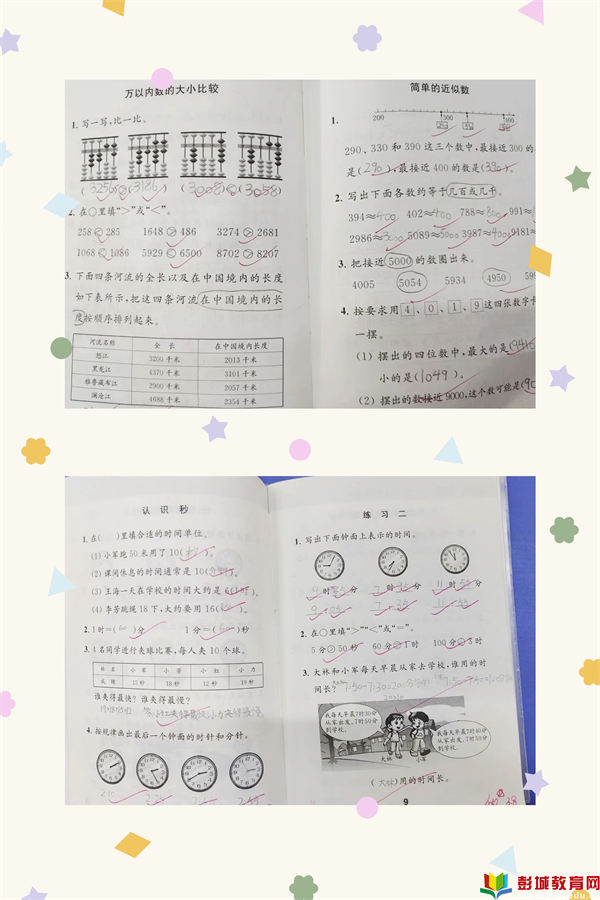 万以内数的大小比较
1. 写一写,比一比。
(3256)>(3186) (3008)<(3058)
2. 在○里填“>”或“<”。
258<285 1648>486 3274>2681
1068<1086 5929<6500 8702>8207
3. 下面四条河流的全长以及在中国境内的长度
如下表所示,把这四条河流在中国境内的长
度按顺序排列起来。
河流名称 全 长 在中国境内长度
怒江 3200 千米 2013 千米
黑龙江 4370 千米 3101 千米
雅鲁藏布江 2900 千米 2057 千米
澜沧江 4688 千米 2354 千米
简单的近似数
1.
200 300 400
290、330 和 390 这三个数中,最接近300的
是(290),最接近 400 的数是(390)。
2. 写出下面各数约等于几百或几千。
394≈400 402≈400 788≈800 991≈
2986≈3000 5089≈5000 3987≈4000 9181≈
3. 把接近 5000 的数圈出来。
4005 5054 5934 4950 59
4. 按要求用 4、0、1、9 这四张数字卡
一摆。
(1) 摆出的四位数中,最大的是(9410
小的是(1049)。
(2) 摆出的数接近 9000,这个数可能是(90
认 识 秒
1. 在( )里填合适的时间单位。
(1) 小军跑50米用了10(秒)。
(2) 课间休息的时间通常是10(分)。
(3) 王海一天在学校的时间大约是6(时)。
(4) 李芳跳绳18下,大约要用16(秒)。
2. 1时=(60)分 1分=(60)秒
3. 4名同学进行夹球比赛,每人夹10个球。
姓 名 小 军 小 芳 小 红 小 力
成 绩 15秒 18秒 12秒 19秒
谁夹得最快?谁夹得最慢?
4. 按规律画出最后一个钟面的时针和分针。
练 习 二
1. 写出下面钟面上表示的时间。
时 分 7时35分 11时55分
7:35 11:55
2. 在○里填“>”“<”或“=”。
5分 50秒 60分 1时 100分 时
3. 大林和小军每天早晨从家去学校,谁用的时
间长?
我每天早晨7时30分
从家出发,7时50分
到学校。
大林 小军
(大林)用的时间长。
9
彭城教育网